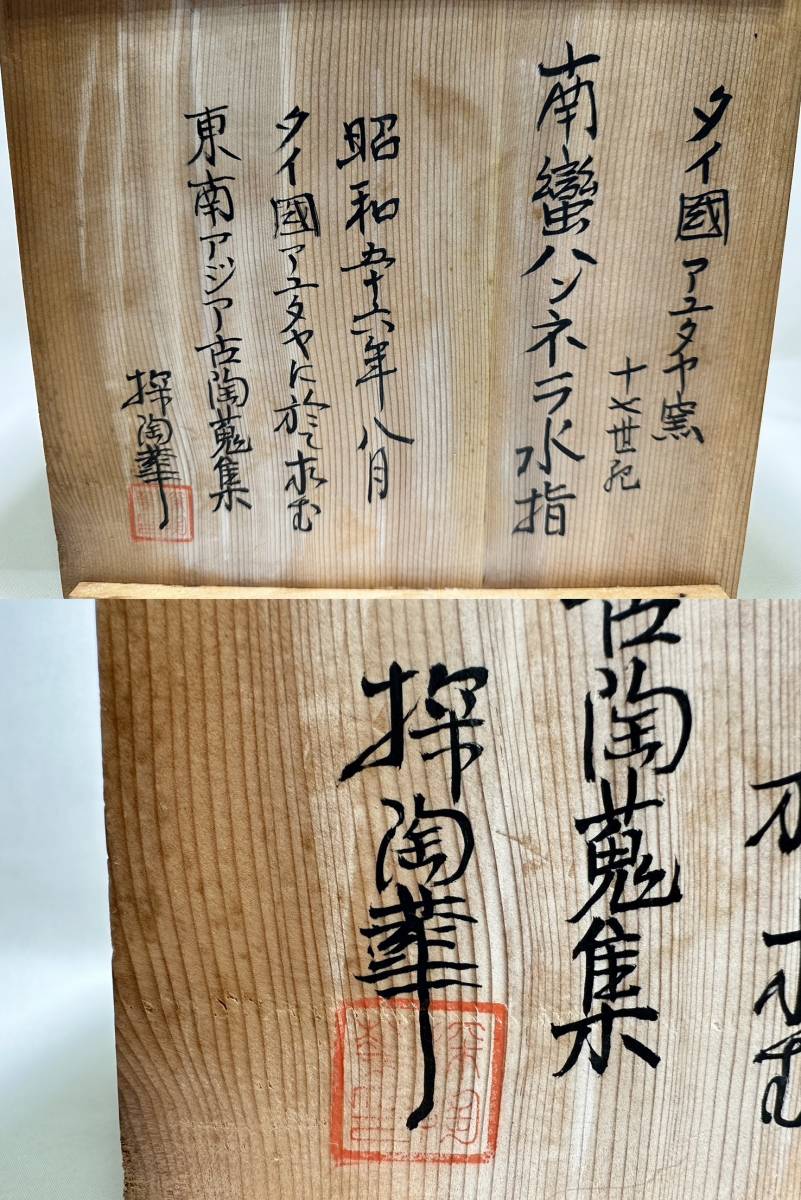 タイ國アユタヤ窯
十七世紀
南蠻ハンネラ水指
昭和五十六年八月
タイ國アユタヤに於て求む
東南アジア古陶蒐集
探陶華
古陶蒐集
探陶華
求む